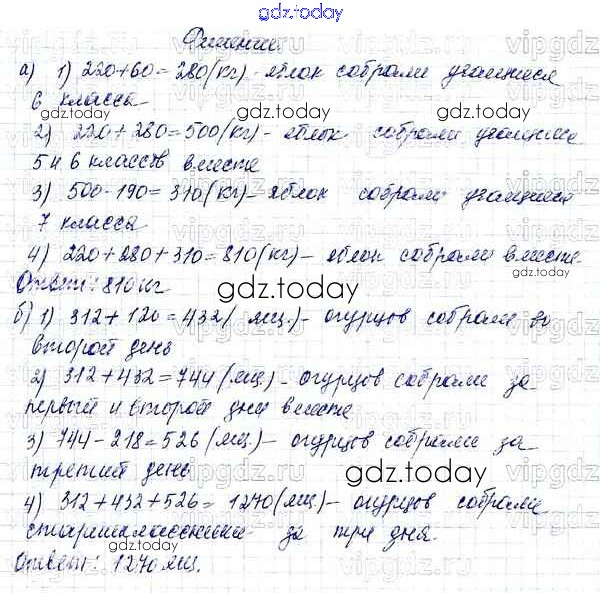 gdz.today
Решение
а) 1) 220+60=280(кг)-яблок собрали учащиеся
6 класса
gdz.today gdz.today
2) 220+280=500(кг)-яблок собрали учащиеся
5 и 6 классов вместе
gdz.today
3) 500-190=310(кг)-яблок собрали учащиеся
7 класса
4) 220+280+310=810(кг)-яблок собрали вместе.
gdz.today
Ответ: 810 кг.
gdz.today
б) 1) 312+120=432(ящ.)-огурцов собрали во
второй день
2) 312+432=744(ящ.)-огурцов собрали за
первый и второй дни вместе
3) 744-218=526(ящ.)-огурцов собрали за
третий день
gdz.today gdz.today
4) 312+432+526=1270(ящ.)-огурцов собрали
старшеклассники за три дня.
gdz.today
Ответ: 1270 ящ.